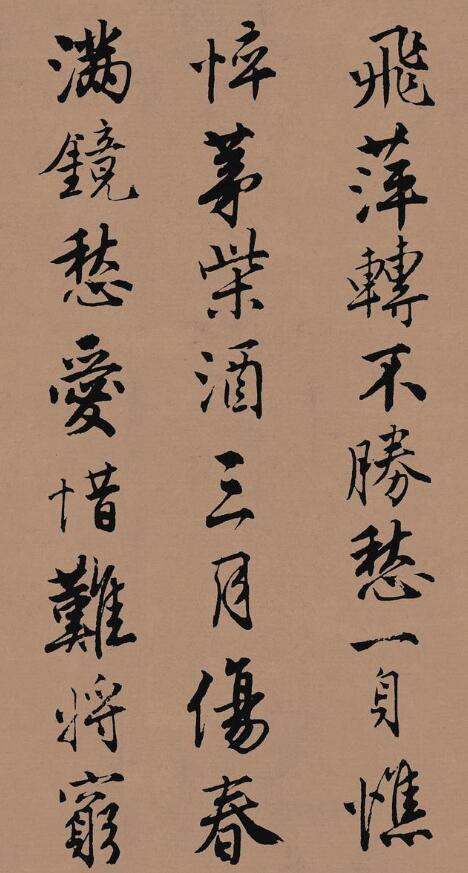 飛萍轉不勝愁一身憔
悴茅柴酒三月傷春
滿鏡愁愛惜難將窮